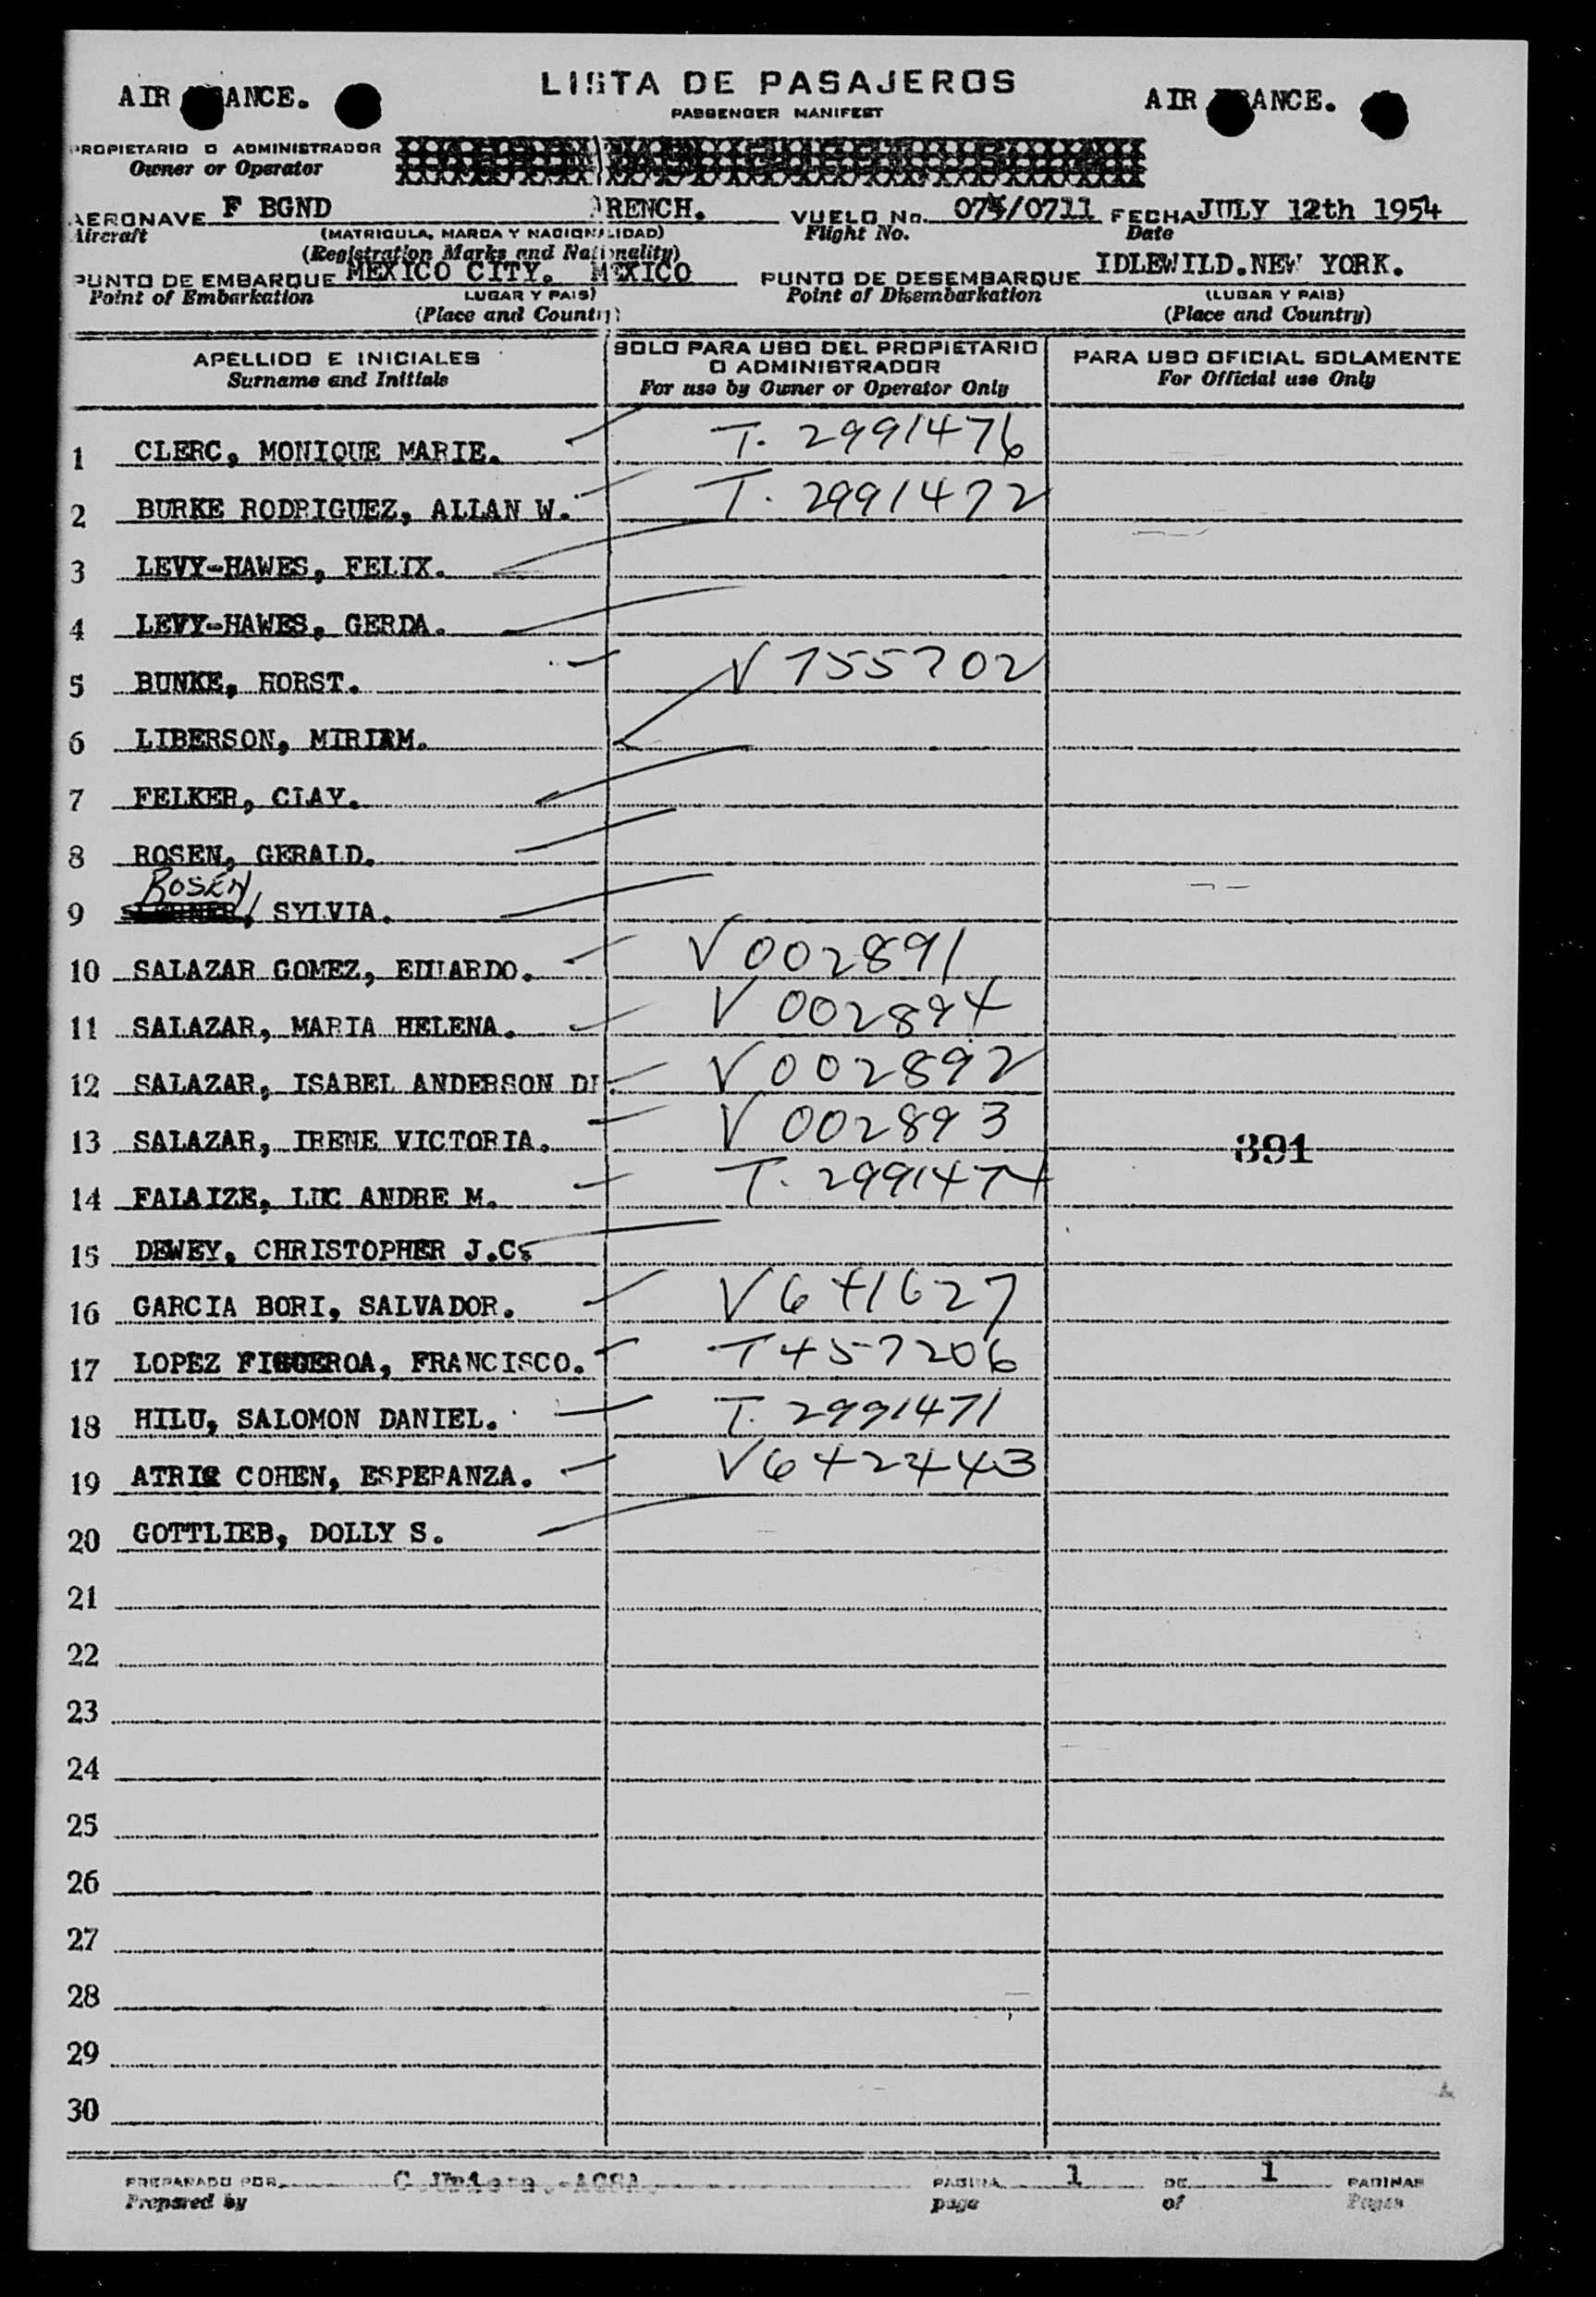 LISTA DE PASAJEROS
PASSENGER MANIFEST
AIR FRANCE. AIR FRANCE.
PROPIETARIO O ADMINISTRADOR
Owner or Operator
AERONAVE F BGND FRENCH. VUELO No. /0711 FECHA JULY 12th 1954
Aircraft (MATRICULA, MARCA Y NACIONALIDAD) Flight No. Date
(Registration Marks and Nationality)
PUNTO DE EMBARQUE MEXICO CITY. MEXICO PUNTO DE DESEMBARQUE IDLEWILD.NEW YORK.
Point of Embarkation LUGAR Y PAIS) Point of Disembarkation (LUGAR Y PAIS)
(Place and Country) (Place and Country)
APELLIDO E INICIALES SOLO PARA USO DEL PROPIETARIO O ADMINISTRADOR PARA USO OFICIAL SOLAMENTE
Surname and Initials For use by Owner or Operator Only For Official use Only
1 CLERC, MONIQUE MARIE. T. 2991476
2 BURKE RODRIGUEZ, ALLAN W. T. 2991472
3 LEVY-HAWES, FELIX.
4 LEVY-HAWES, GERDA.
5 BUNKE, HORST. V 755702
6 LIBERSON, MIRIAM.
7 FELKER, CLAY.
8 ROSEN, GERALD.
ROSEN
9 SYLVIA.
10 SALAZAR GOMEZ, EDUARDO. V 002891
11 SALAZAR, MARIA HELENA. V 002894
12 SALAZAR, ISABEL ANDERSON DE. V 002892
13 SALAZAR, IRENE VICTORIA. V 002893 391
14 FALAIZE, LUC ANDRE M. T. 2991474
15 DEWEY, CHRISTOPHER J.C.
16 GARCIA BORI, SALVADOR. V 641627
17 LOPEZ FIGUEROA, FRANCISCO. T 457206
18 HILU, SALOMON DANIEL. T. 2991471
19 ATRI COHEN, ESPERANZA. V 642443
20 GOTTLIEB, DOLLY S.
21
22
23
24
25
26
27
28
29
30
PREPARADO POR PAGINA 1 DE 1 PAGINAS
Prepared by page of Pages